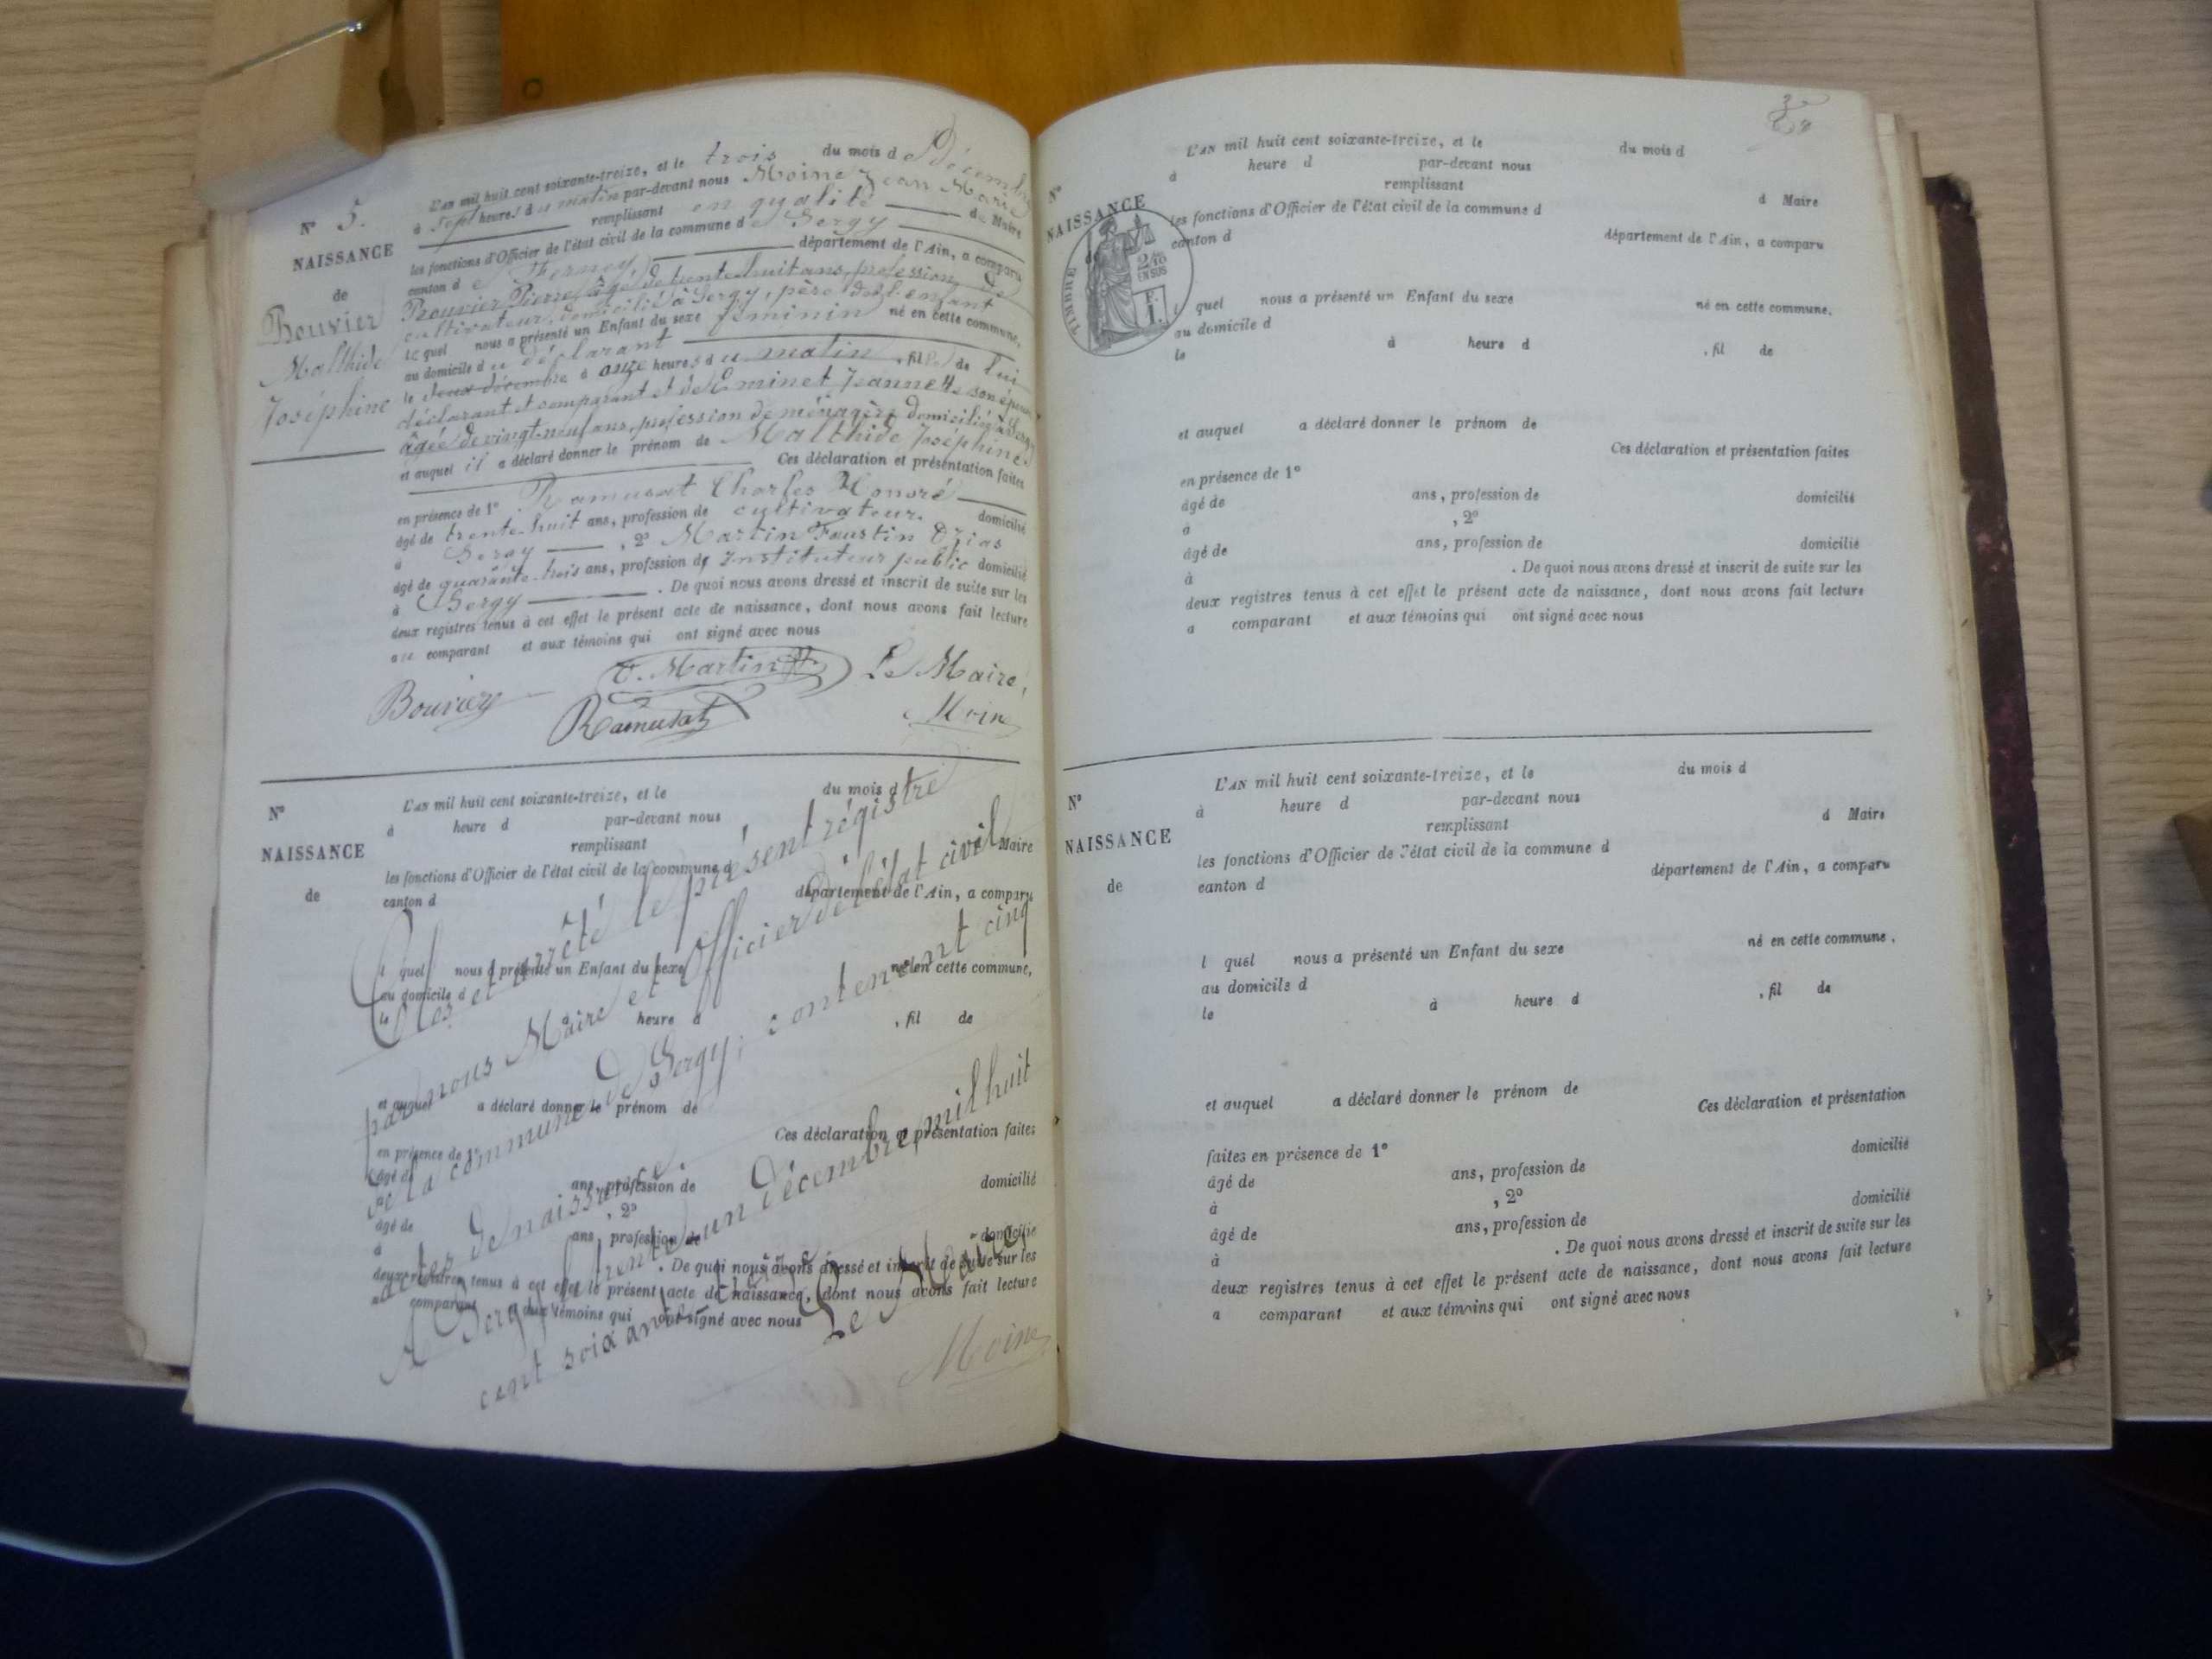 N° 5.
NAISSANCE
de
Bouvier
Malthide
Joséphine
L'AN mil huit cent soixante-treize, et le trois du mois de Décembre
à Sept heures du matin par-devant nous Moine Jean Marie
remplissant en qualité de Maire
les fonctions d'Officier de l'état civil de la commune de Sergy
canton de Ferney, département de l'Ain, a comparu
Bouvier Pierre, âgé de trente-huit ans, profession de
cultivateur, domicilié à Sergy, père de l'enfant
lequel nous a présenté un Enfant du sexe féminin né en cette commune,
au domicile du déclarant
le deux décembre à onze heures du matin, fille de lui
déclarant et comparant et de Eminet Jeannette son épouse
âgée de vingt-neuf ans, profession de ménagère domiciliée à Sergy
et auquel il a déclaré donner le prénom de Malthide Joséphine.
Ces déclaration et présentation faites
en présence de 1° Ramusat Charles Honoré
âgé de trente-huit ans, profession de cultivateur. domicilié
à Sergy, 2° Martin Faustin Ozias
âgé de quarante-trois ans, profession d'Instituteur public domicilié
à Sergy. De quoi nous avons dressé et inscrit de suite sur les
deux registres tenus à cet effet le présent acte de naissance, dont nous avons fait lecture
au comparant et aux témoins qui ont signé avec nous
Bouvier
Martin
Ramusat
Le Maire,
Moine
N°
NAISSANCE
de
L'AN mil huit cent soixante-treize, et le du mois d
à heure d par-devant nous
remplissant Maire
les fonctions d'Officier de l'état civil de la commune d
canton d département de l'Ain, a comparu
l quel nous a présenté un Enfant du sexe né en cette commune,
au domicile d
le à heure d , fil de
et auquel a déclaré donner le prénom de
Ces déclaration et présentation faites
en présence de 1°
âgé de ans, profession de domicilié
à , 2°
âgé de ans, profession de domicilié
à . De quoi nous avons dressé et inscrit de suite sur les
deux registres tenus à cet effet le présent acte de naissance, dont nous avons fait lecture
a comparant et aux témoins qui ont signé avec nous
Clos et arrêté le présent régistre
par nous Maire et Officier de l'état civil
de la commune de Sergy, contenant cinq
actes de naissance.
A Sergy, le trente-un Décembre, mil huit
cent soixante-treize
Le Maire,
Moine
N°
NAISSANCE
de
TIMBRE
2/10
EN SUS
F.
1.
L'AN mil huit cent soixante-treize, et le du mois d
à heure d par-devant nous
remplissant d Maire
les fonctions d'Officier de l'état civil de la commune d
canton d département de l'Ain, a comparu
l quel nous a présenté un Enfant du sexe né en cette commune,
au domicile d
le à heure d , fil de
et auquel a déclaré donner le prénom de
Ces déclaration et présentation faites
en présence de 1°
âgé de ans, profession de domicilié
à , 2°
âgé de ans, profession de domicilié
à . De quoi nous avons dressé et inscrit de suite sur les
deux registres tenus à cet effet le présent acte de naissance, dont nous avons fait lecture
a comparant et aux témoins qui ont signé avec nous
N°
NAISSANCE
de
L'AN mil huit cent soixante-treize, et le du mois d
à heure d par-devant nous
remplissant d Maire
les fonctions d'Officier de l'état civil de la commune d
canton d département de l'Ain, a comparu
l quel nous a présenté un Enfant du sexe né en cette commune,
au domicile d
le à heure d , fil de
et auquel a déclaré donner le prénom de
Ces déclaration et présentation
faites en présence de 1° domicilié
âgé de ans, profession de
à , 2° domicilié
âgé de ans, profession de
à . De quoi nous avons dressé et inscrit de suite sur les
deux registres tenus à cet effet le présent acte de naissance, dont nous avons fait lecture
a comparant et aux témoins qui ont signé avec nous